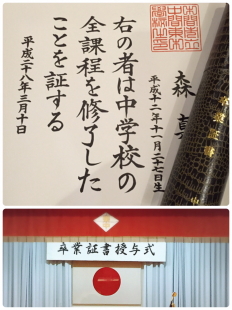 森 真
平成十二年十一月二七日生
右の者は中学校の
全課程を修了した
ことを証する
平成二八年三月十日
卒業証書
卒業証書授与式